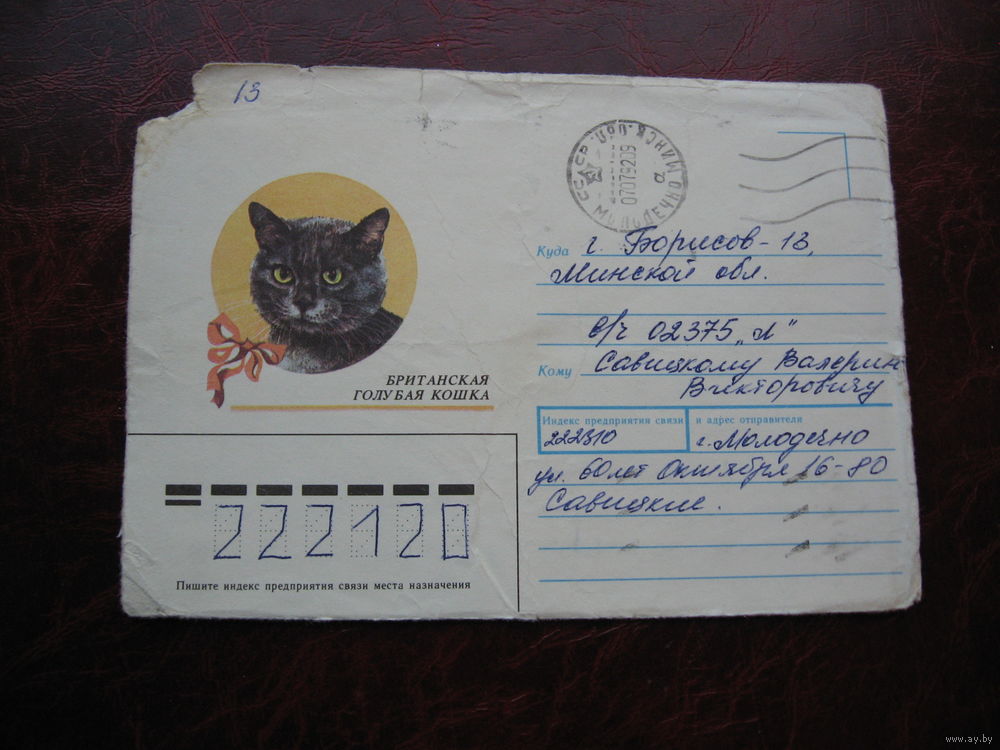 13
СССР
МОЛОДЕЧНО МИНСК. ОБЛ.
07079209
а
БРИТАНСКАЯ
ГОЛУБАЯ КОШКА
Куда г. Борисов-13,
Минской обл.
в/ч 02375 „Л"
Кому Савицкому Валерию
Викторовичу
Индекс предприятия связи и адрес отправителя
222310 г. Молодечно
ул. 60 лет Октября 16-80
Савицкие.
222120
Пишите индекс предприятия связи места назначения
www.ay.by